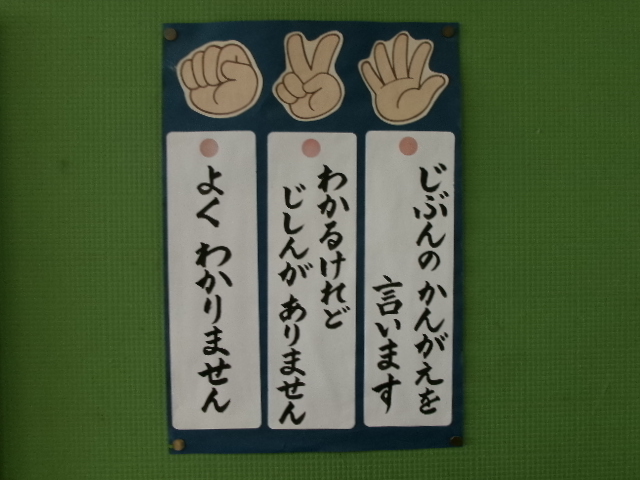 じぶんの かんがえを
言います
わかるけれど
じしんが ありません
よく わかりません